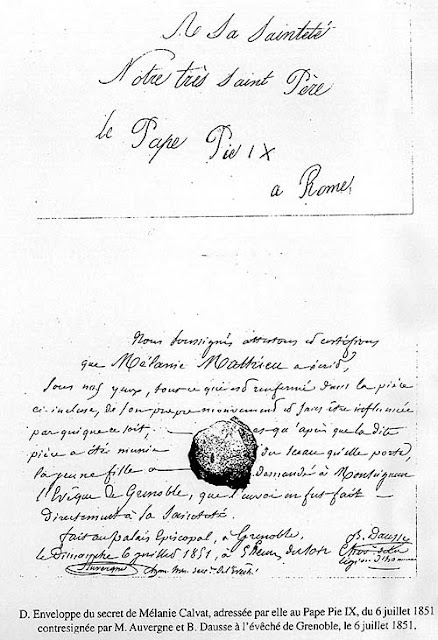 A Sa Sainteté
Notre très Saint Père
le Pape Pie IX
a Rome
Nous soussignés attestons et certifions
que Mélanie Mathieu a écrit,
sous nos yeux, tout ce qui est renfermé dans la pièce
ci-incluse, de son propre mouvement et sans être influencée
par quique ce soit, es qu'après que la dite
pièce a étés munie du sceau qu'elle porte,
la jeune fille a demandé à Monseigneur
l'Evêque de Grenoble, que l'envoi en fut fait
directement à sa Sainteté.
fait au palais Episcopal, à Grenoble,
le Dimanche 6 juillet 1851, à 5 heures du soir
B. Dausse
Auvergne
légion d'honn
D. Enveloppe du secret de Mélanie Calvat, adressée par elle au Pape Pie IX, du 6 juillet 1851
contresignée par M. Auvergne et B. Dausse à l'évêché de Grenoble, le 6 juillet 1851.